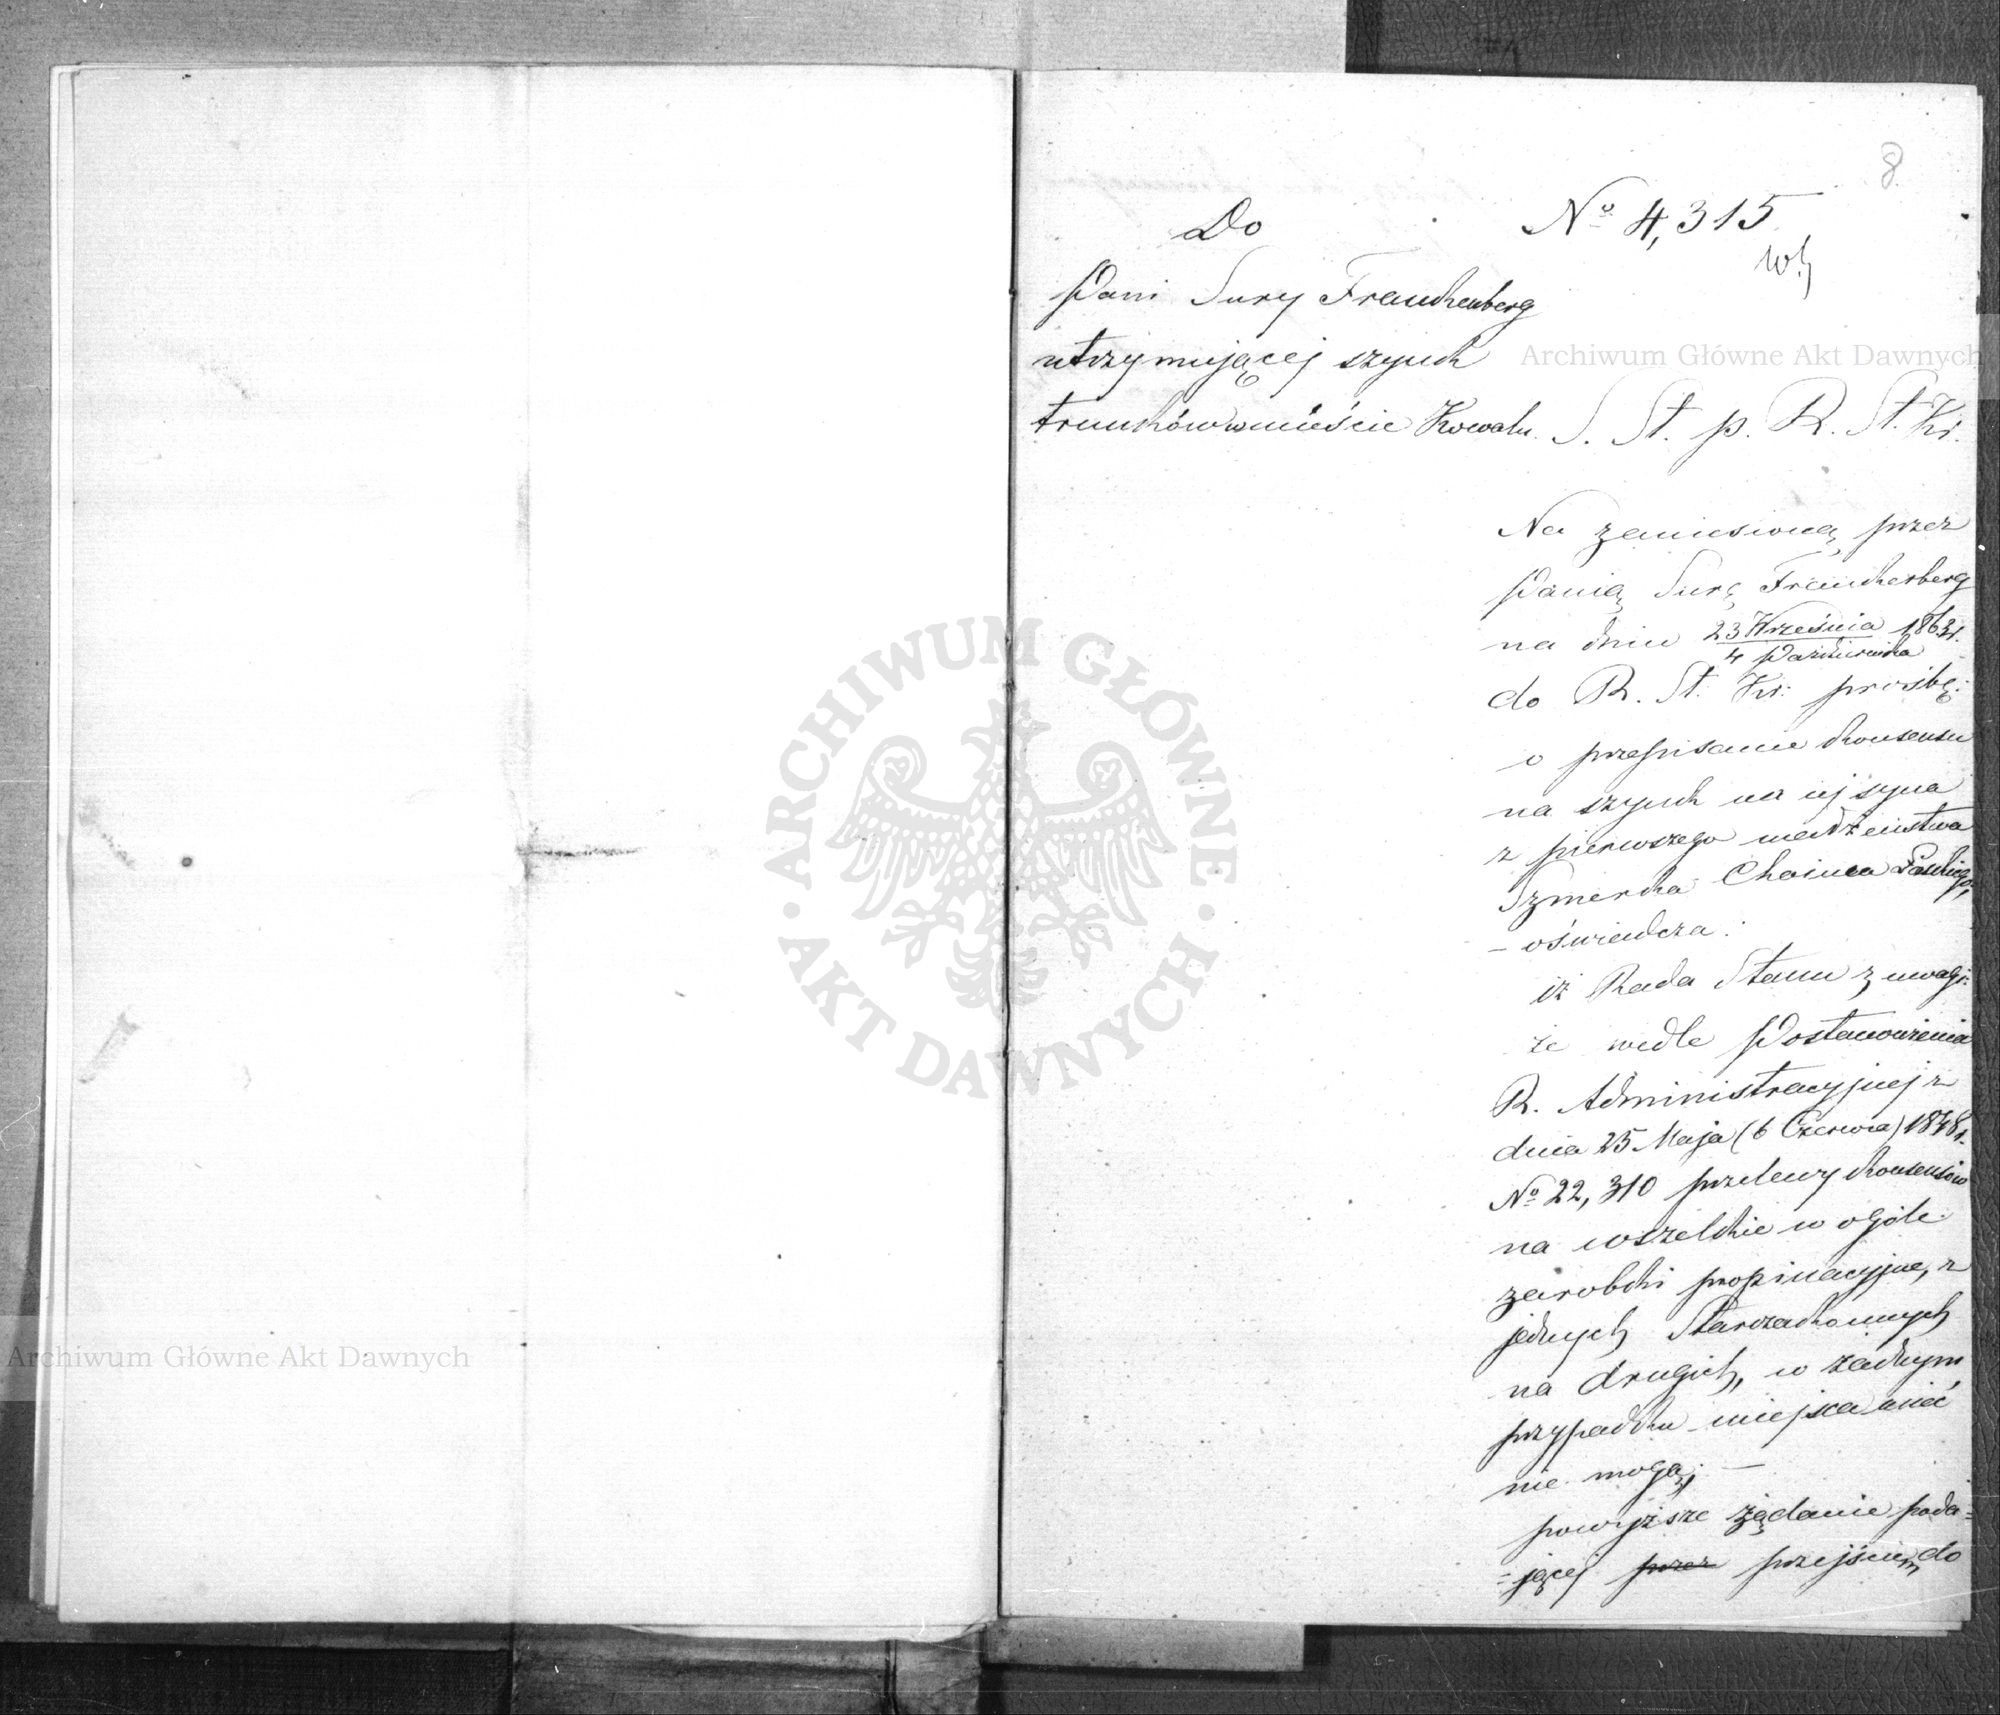 8
Do
Nº 4,315
Pani Sury Frauchenberg
utrzymującej szynk
trunków w mieście Kowalu.
S. St. p. R. St. Kr.
Na zaniesioną przez
Panią Surę Frauchenberg
na dniu 23 Września 1863r.
4 Października
do R. St. Kr. prośbę
o przepisanie konsensu
na szynk na jej syna
z pierwszego małżeństwa
Szmerka Chaima
– oświadcza:
iż Rada Stanu z uwagi:
że wedle Postanowienia
R. Administracyjnej z
dnia 25 Maja (6 Czerwca) 1848r.
Nº 22,310 przelewy konsensów
na wszelkie w ogóle
zarobki propinacyjne, z
jednych Starozakonnych
na drugich, w żadnym
przypadku miejsca mieć
nie mogą; —
powyższe żądanie poda=
=jącej przez przejściem do
Archiwum Główne Akt Dawnych
Archiwum Główne Akt Dawnych
ARCHIWUM GŁÓWNE · AKT DAWNYCH ·